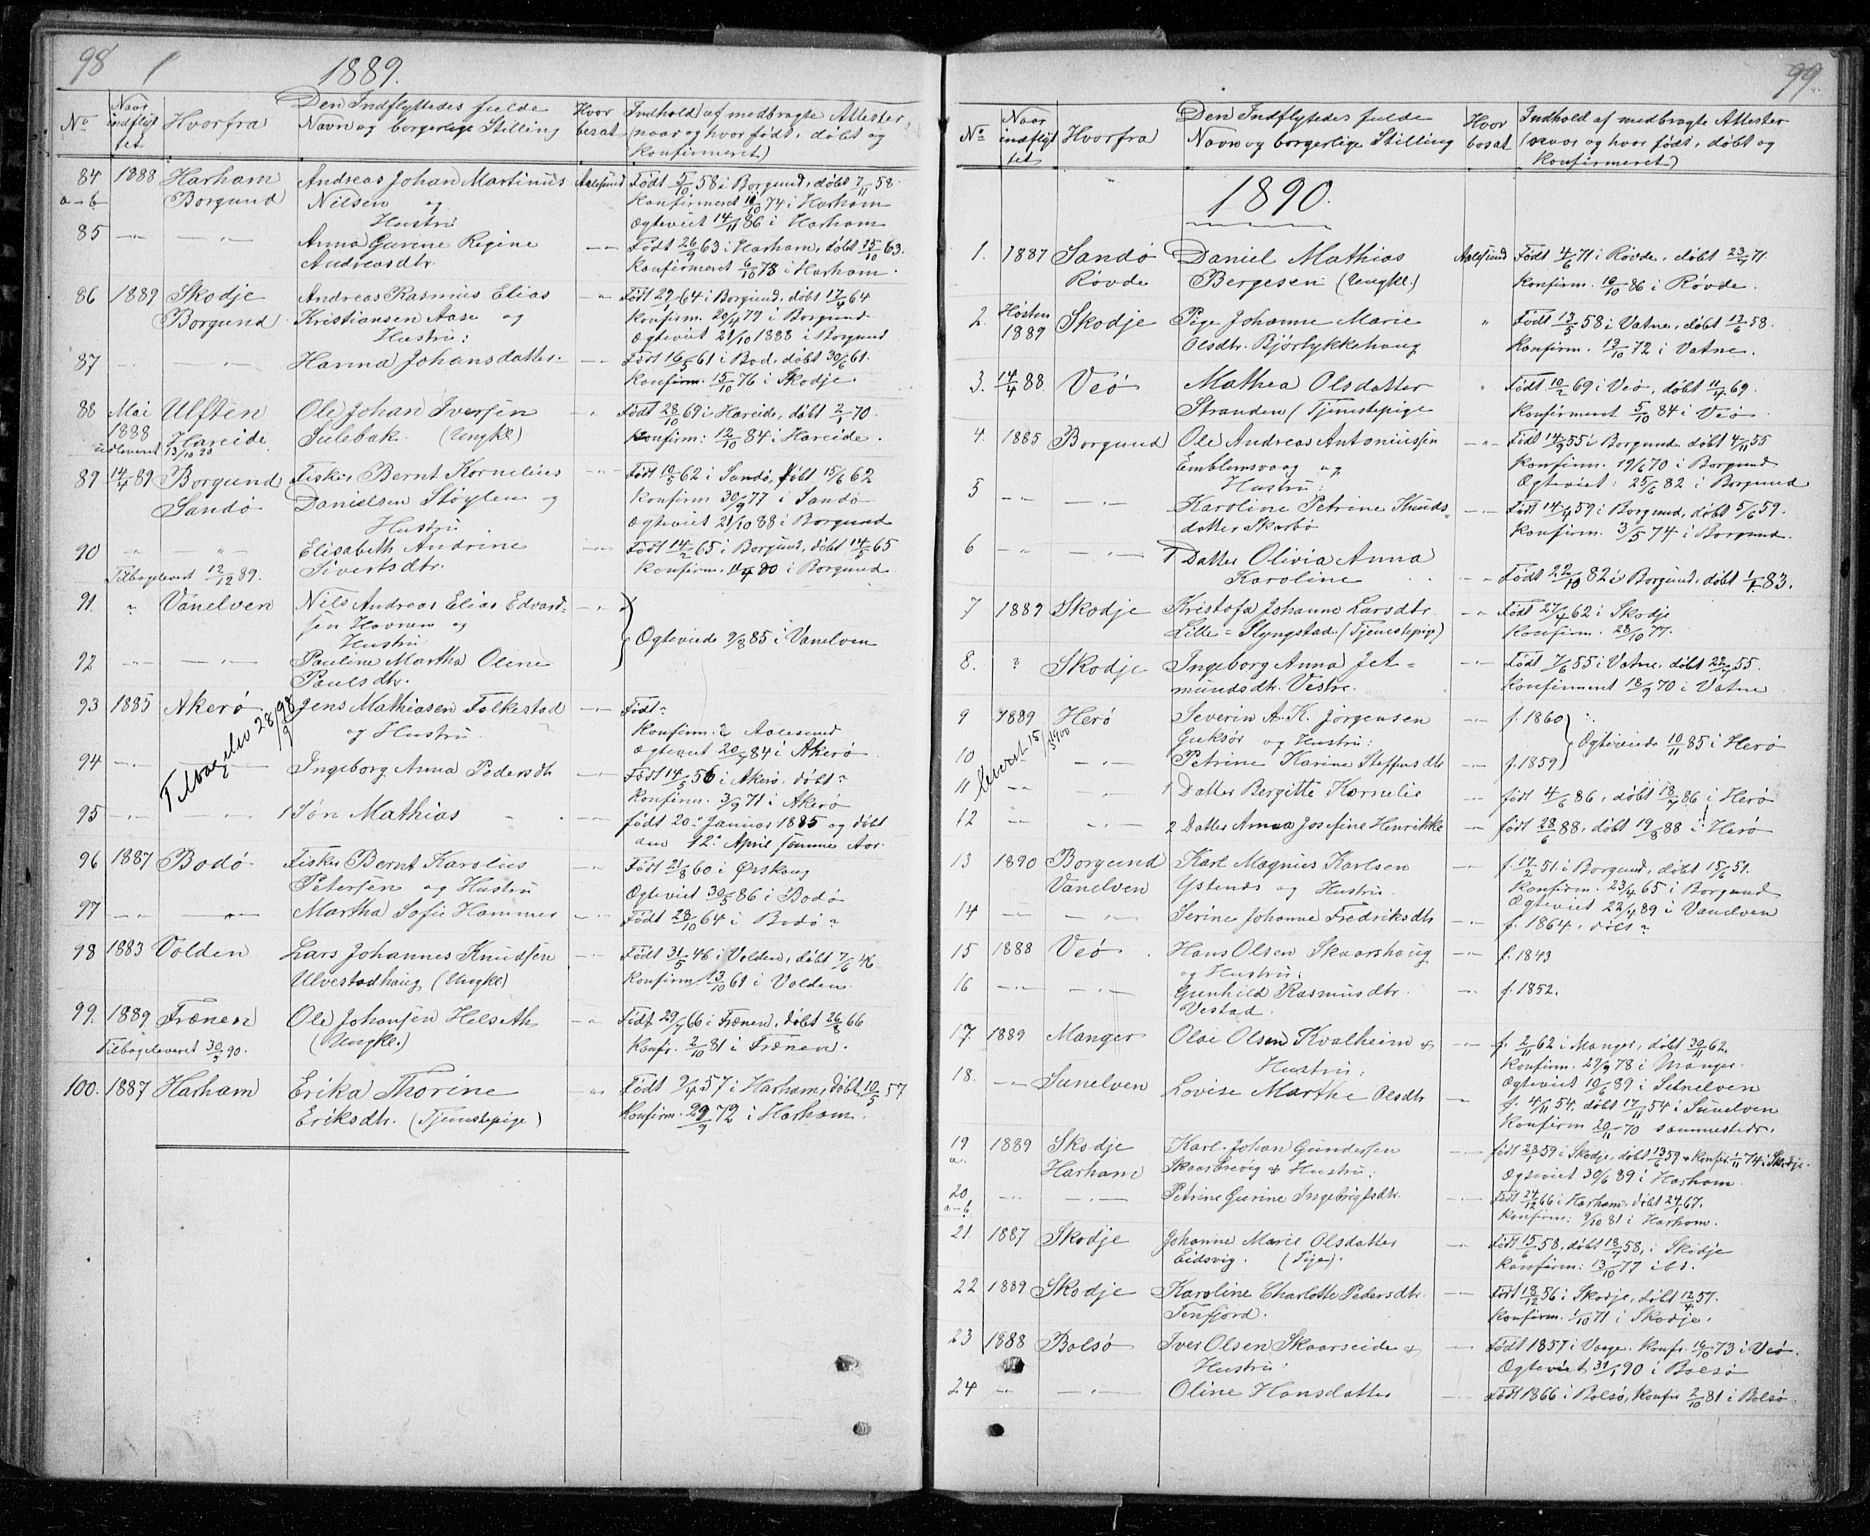 98
1889.
No
Naar indflyttet
Hvorfra
Den Indflyttedes fulde Navn og borgerlige Stilling
Hvor bosat
Indhold af medbragte Attester (naar og hvor født, døbt og konfirmeret)
84 1888 Harham Andreas Johan Martinus Aalesund Født 5/10 58 i Borgund, døbt 7/11 58.
a-b Borgund Nilsen og Konfirmeret 74 i Harham
Hustru Ægteviet 14/11 86 i Harham
85 — „ — Anna Gurine Regine — Født 26/9 63 i Harham, døbt 15/10 63.
Andreasdtr. Konfirmeret 6/10 78 i Harham.
86 1889 Skodje Andreas Rasmus Elias „ Født 29/64 i Borgund, døbt 17/4 64
Borgund Kristiansen Aase og Konfirm. 20/4 79 i Borgund
Hustru: Ægteviet 21/10 1888 i Borgund
87 — „ — Hanna Johansdatter — Født 16/5 61 i Bod, døbt 30/6 61.
Konfirm. 15/10 76 i Skodje.
88 Mai Ulften Ole Johan Iversen — „ Født 28/10 69 i Hareide, døbt 2/1 70.
1888 Hareide Sulebak (Ungkl) Konfirm: 12/10 84 i Hareide.
udleveret 13/10 23
89 14/4 89 Borgund Fisker Bernt Kornelius — Født 10/5 62 i Sandø, døbt 15/6 62
Sandø Danielsen Støylen og Konfirm 30/9 77 i Sandø
Hustru Ægteviet 21/10 88 i Borgund
90 „ „ Elisabeth Andrine — Født 14/2 65 i Borgund, døbt 14/5 65
Tilbageleveret 12/12 89. Sivertsdtr. Konfirm. 11/4 80 i Borgund
91. „ Vanelven Nils Andreas Elias Edvard- — „
sen Hovnen og
Hustru Ægteviede 9/8 85 i Vanelven
92 — „ — Pauline Martha Oline — „
Paulsdtr.
93 1885 Akerø Jens Mathiasen Folkestad — Født „
Tilbagelev 28/9 98
og Hustru Konfirm. i Aalesund
Ægteviet 20/7 84 i Akerø.
94 — Ingeborg Anna Pedersdtr — Født 14/5 56 i Akerø, døbt „
Konfirm. 3/9 71 i Akerø
95 — „ — 1 Søn Mathias — født 20. Januar 1885 og døbt
den 12. April samme Aar.
96 1887 Bodø Fisker Bernt Karolius — Født 21/8 60 i Ørskoug
Petersen og Hustru Ægteviet 30/5 86 i Bodø
97 — „ — Martha Sofie Hammer — Født 28/10 64 i Bodø „
98 1883 Volden Lars Johannes Knudsen — Født 31/5 46 i Volden, døbt 7/6 46
Ulvestadhaug (Ungkl) Konfirm 13/10 61 i Volden.
99. 1889 Frænen Ole Johansen Helseth — Født 29/7 66 i Frænen, døbt 26/8 66
Tilbageleveret 30/3 90. (Ungkl.) Konfr. 2/10 81 i Frænen.
100. 1887 Harham Erika Thorine — Født 9/4 57 i Harham, døbt 10/5 57
Eriksdtr. (Tjenestepige) Konfirm. 29/9 72 i Harham.
99.
No
Naar indflyttet
Hvorfra
Den Indflyttedes fulde Navn og borgerlige Stilling
Hvor bosat
Indhold af medbragte Attester (naar og hvor født, døbt og konfirmeret)
1890.
1. 1887 Sandø Daniel Mathias Aalesund Født 4/6 71 i Røvde, døbt 23/7 71.
Røvde Bergesen (Ungkl.) Konfirm. 10/10 86 i Røvde.
2. Høsten Skodje Pige Johanne Marie „ Født 13/5 58 i Vatne, døbt 12/6 58.
1889 Olsdtr. Bjørlykkehaug Konfirm. 13/10 72 i Vatne.
3. 14/4 88 Veø Mathea Olsdatter „ Født 10/2 69 i Veø, døbt 11/4 69.
Stranden (Tjenestepige Konfirmeret 5/10 84 i Veø.
4. 1885 Borgund Ole Andreas Antoniussen — „ Født 14/9 55 i Borgund døbt 4/11 55
Emblemsvaag og Konfirm. 19/6 70 i Borgund
Hustru: Ægteviet: 25/6 82 i Borgund
5 — „ — Karoline Petrine Knuds- — Født 14/4 59 i Borgund, døbt 5/6 59.
datter Skarbø Konfirm. 3/5 74 i Borgund.
6 — „ — 1 Datter Olivia Anna
Karoline — Født 22/10 82 i Borgund, døbt 1/1 83.
7 1889 Skodje Kristofa Johanne Larsdtr. — Født 27/4 62 i Skodje
Lille-Slyngstad (Tjenestepige) Konfirm. 28/10 77.
8. „ Skodje Ingeborg Anna Jet- — Født 7/6 55 i Vatne, døbt 22/7 55.
mundsdtr. Vestre. Konfirmeret 18/9 70 i Vatne
9 1889 Herø Severin A. K. Jørgensen — f. 1860
leveret 15/5 1900
Gurskør og Hustru: Ægteviede 10/11 85 i Herø
10 — „ — Petrine Karine Steffensdtr — f. 1859
11 — „ — 1 Datter Bergitte Kornelie — født 4/6 86, døbt 18/7 86 i Herø
12 — „ — 2 Datter Anna Josefine Henrikke — født 28/6 88, døbt 19/8 88 i Herø
13 1890 Borgund Karl Magnus Karlsen — f. 17/2 51. i Borgund, døbt 15/6 51.
Vanelven Ystenes og Hustru Konfirm. 23/4 65 i Borgund
Ægteviet 22/4 89 i Vanelven
14 — „ — Serine Johanne Fredriksdtr — f. 1864, døbt „
15 1888 Veø Hans Olsen Skaarshaug — f. 1843
og Hustru:
16 — „ — Gunhild Rasmusdtr. — f. 1852.
Vestad.
17. 1889 Manger Oloe Olsen Kvalheim & — f. 2/11 62 i Manger, døbt 30/11 62.
Hustru: Konfirm. 29/9 78 i Manger
18. — Sunelven Lovise Marthe Olsdtr — Ægteviet 10/6 89 i Sunelven
f. 4/11 54, døbt 17/11 54 i Sunelven
Konfirm 20/11 70 sammesteds.
19 1889 Skodje Karl Johan Gundersen — født 23/1 59 i Skodje, døbt 13/6 59 & Konfir. 1/11 74 i Skodje.
a. Harham Skaarbrevig & Hustru: Ægteviet 30/6 89 i Harham.
20 — „ — Petrine Gurine Ingebrigtsdtr. — Født 24/12 66 i Harham, døbt 24/1 67.
a-b Konfirm: 9/10 81 i Harham.
21. 1887 Skodje Johanne Marie Olsdatter — Født 15/6 58, døbt 18/7 58, i Skodje
Eidsvig. (Pige). Konfirm: 13/10 77 ibd.
22 1889 Skodje Karoline Charlotte Pedersdtr. — Født 18/12 56 i Skodje, døbt 12/4 57.
Tenfjord. Konfirm. 1/10 71 i Skodje.
23 1888 Bolsø Iver Olsen Skaarseide & — Født 1857 i Vaage. Konfr. 10/10 73 i Veø.
Hustru Ægteviet 31/1 90 i Bolsø
24 — „ — Oline Hansdatter — Født 1866 i Bolsø, Konfir 2/10 81 i Bolsø.